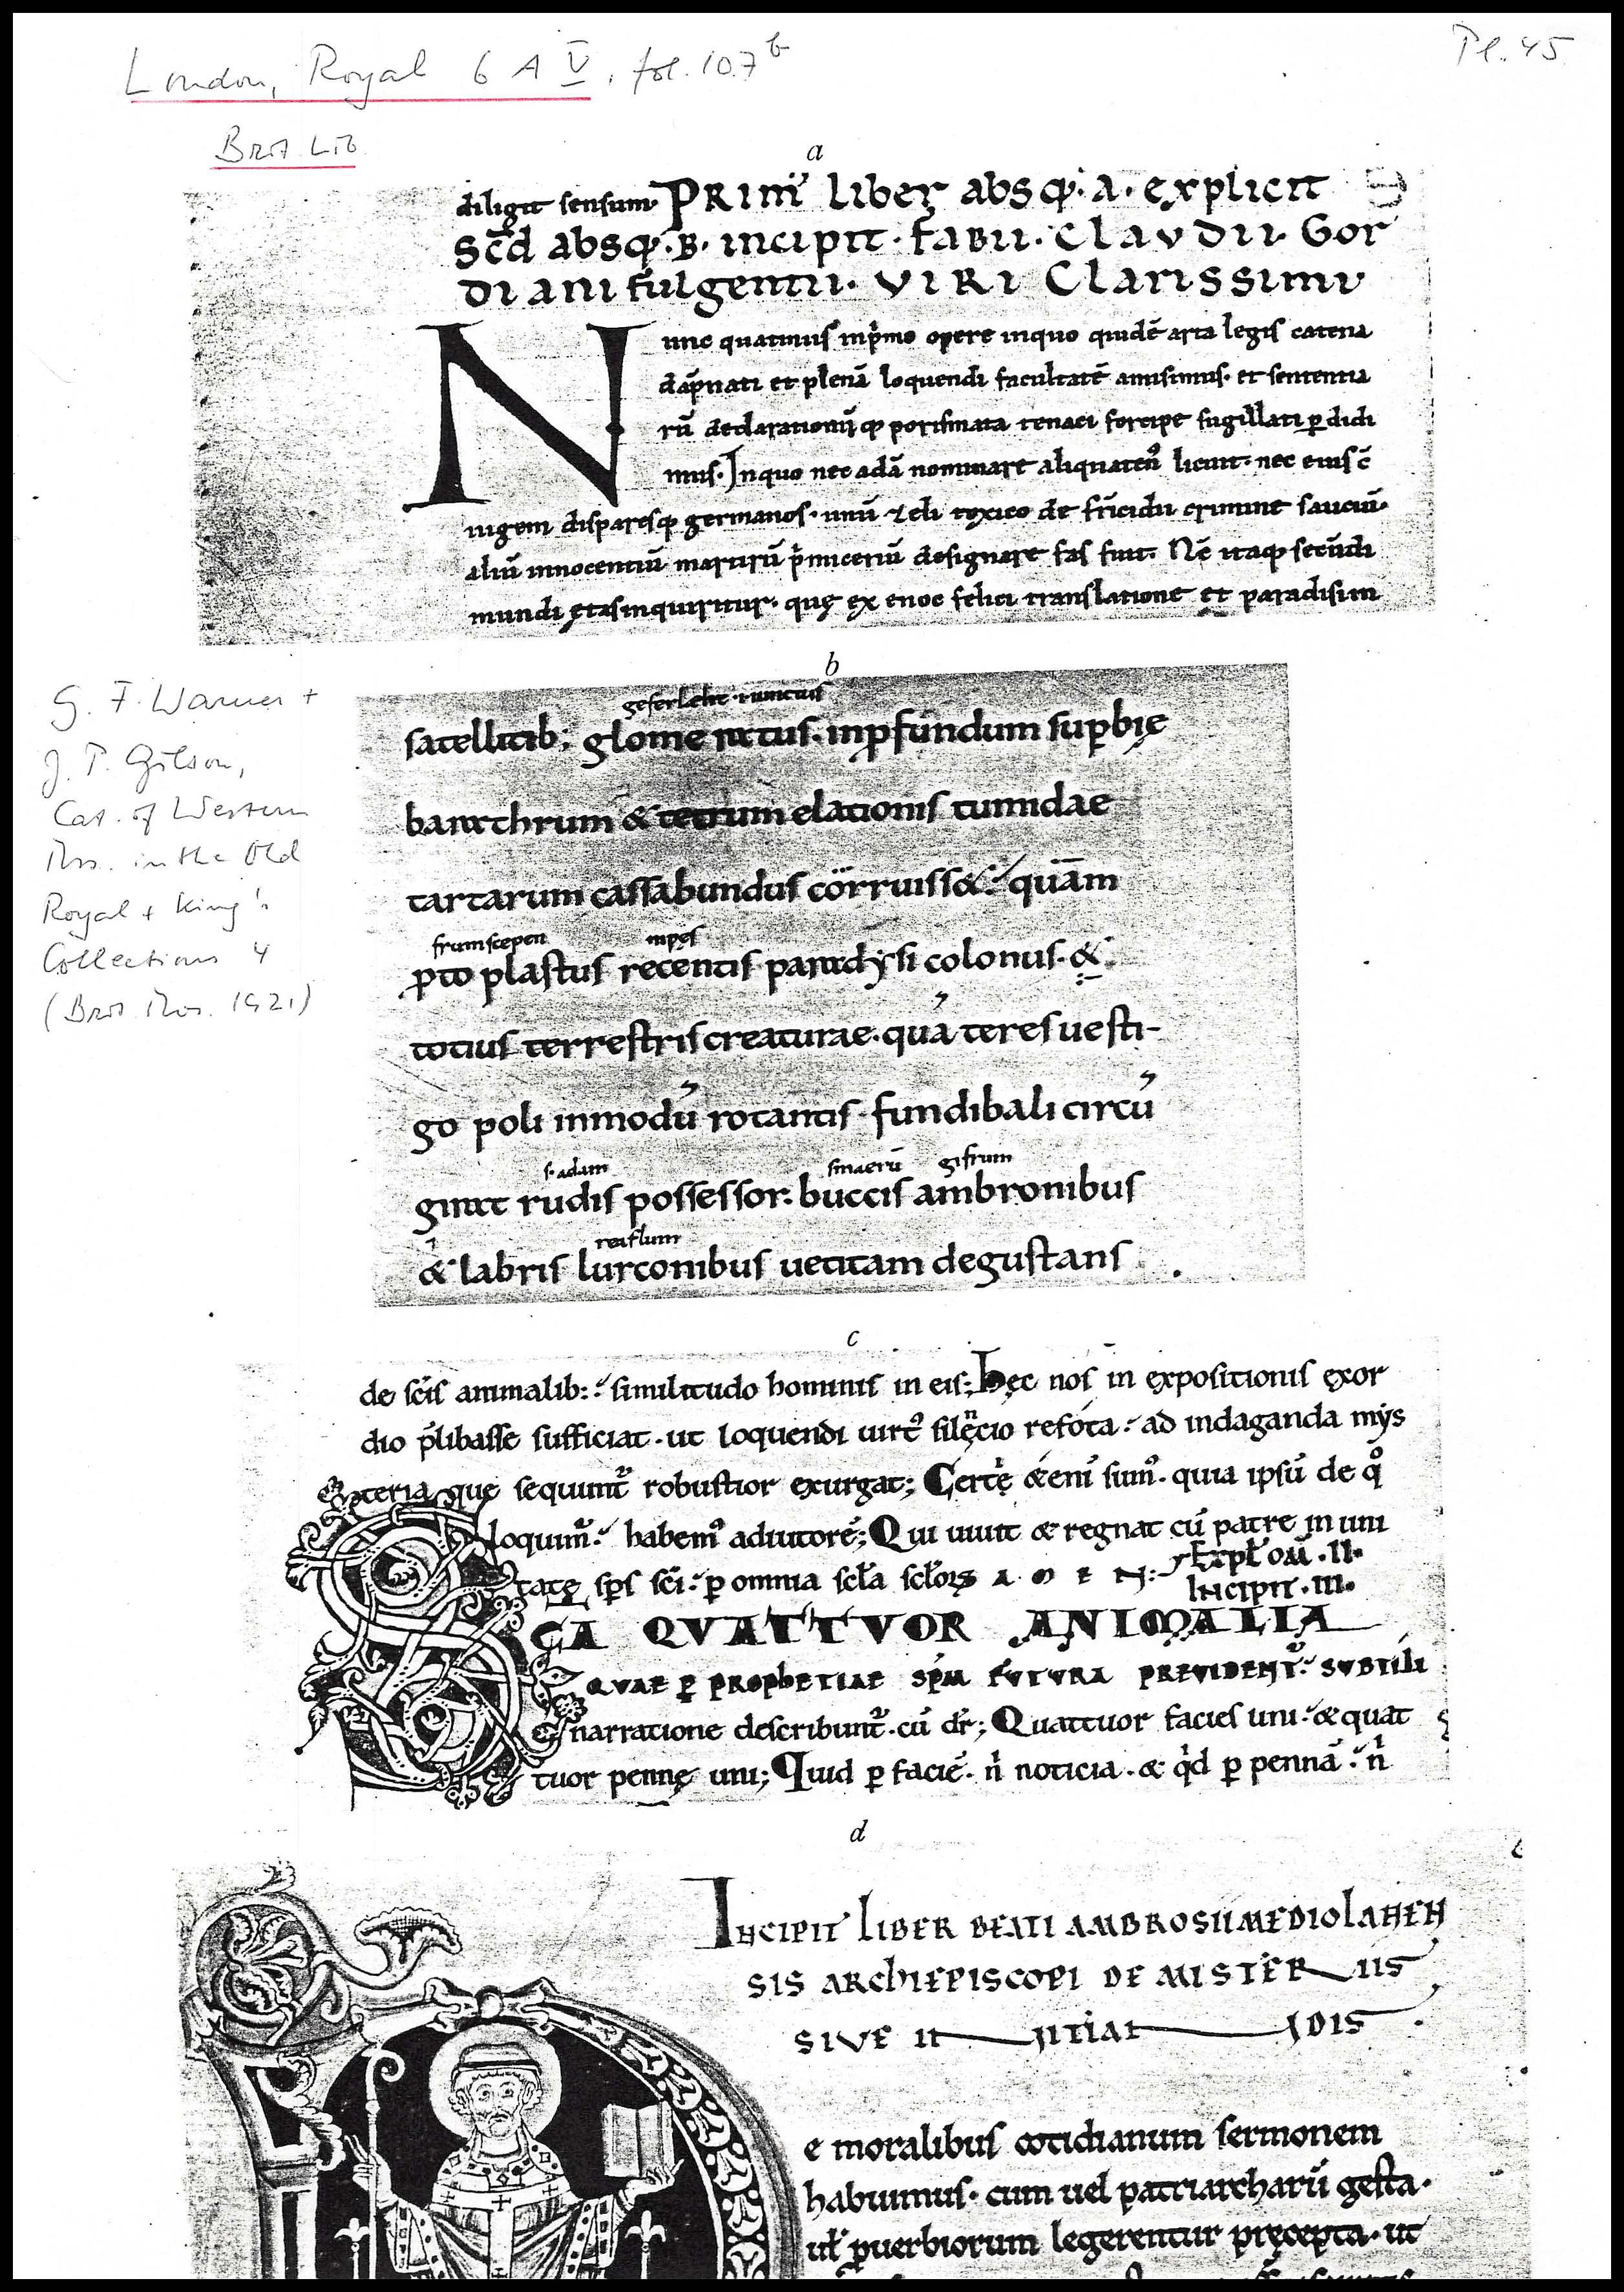 London, Royal 6 A V, fol. 107b
Pl. 45
Brit. Lib
a
diligit sensum· PRIM' liber absq;· A· explicit
Scd̄ absq;· B· incipit· fabii· Claudii· Gor
diani fulgentii· VIRI Clarissimi
Nunc quatinus inp̄mo opere inquo quidē arta legis catena
dāpnati et plenā loquendi facultatē amisimus· et sententia
rū declarationūq; porismata tenaci forcipe sugillati p̱didi
mus· Inquo nec adā nominare aliquaten⁹ licuit· nec eius c̄
iugem disparesq; germanos· unū zeli toxico de fr̄icidii crimine sauciū·
aliū innocentiū martirū p̄miceriū designare fas fuit· Nc̄ itaq; secūdi
mundi ętas inquiritur· quę ex enoc felici translatione et paradisim
G. F. Warner +
J. P. Gilson,
Cat. of Western
Mss. in the Old
Royal + King's
Collections 4
(Brit. Mus. 1921)
b
satellitib; glomeratus· inp̱fundum sup̱bię
barathrum & tetrum elationis tumidae
tartarum cassabundus corruiss&· quam
frumscepen
p̱to plastus recentis paradysi colonus· &
totius terrestris creaturae· qua teres uesti-
go poli inmodū rotantis· fundibali circū
s· adam gifrum
girat rudis possessor· buccis ambronibus
& labris lurconibus uetitam degustans
c
de scīs animalib: similitudo hominis in eis; hęc nos in expositionis exor
dio p̄libasse sufficiat· ut loquendi uirt⁹ silęncio refota· ad indaganda mys
teria que sequunt᷑ robustior exurgat; Certę &eni sum⁹· quia ipsū de q̊
loquim᷑· habem⁹ adiutorē; Qui uiuit & regnat cū patre in uni
tate sp̄s scī· p̱ omnia scl̄a scl̄oꝝ A M E N:
Expl̄ om̄· II·
Incipit· III·
SCA QVATTVOR ANIMALIA
QVAE P̱ PROPHETIAE SPM FVTVRA PREVIDENT᷑· SVBTILI
enarratione describunt᷑· cū dr̄; Quattuor facies uni· & quat
tuor pennę uni; Quid p̱ faciē· n̄ noticia· & qd̄ p̱ pennā· n̄
d
INCIPIT LIBER BEATI AMBROSII MEDIOLANEN
SIS ARCHIEPISCOPI DE MISTERIIS
SIVE INITIANDIS
e moralibus cotidianum sermonem
habuimus· cum uel patriarcharū gesta·
ul̄ p̱uerbiorum legerentur pręcepta· ut